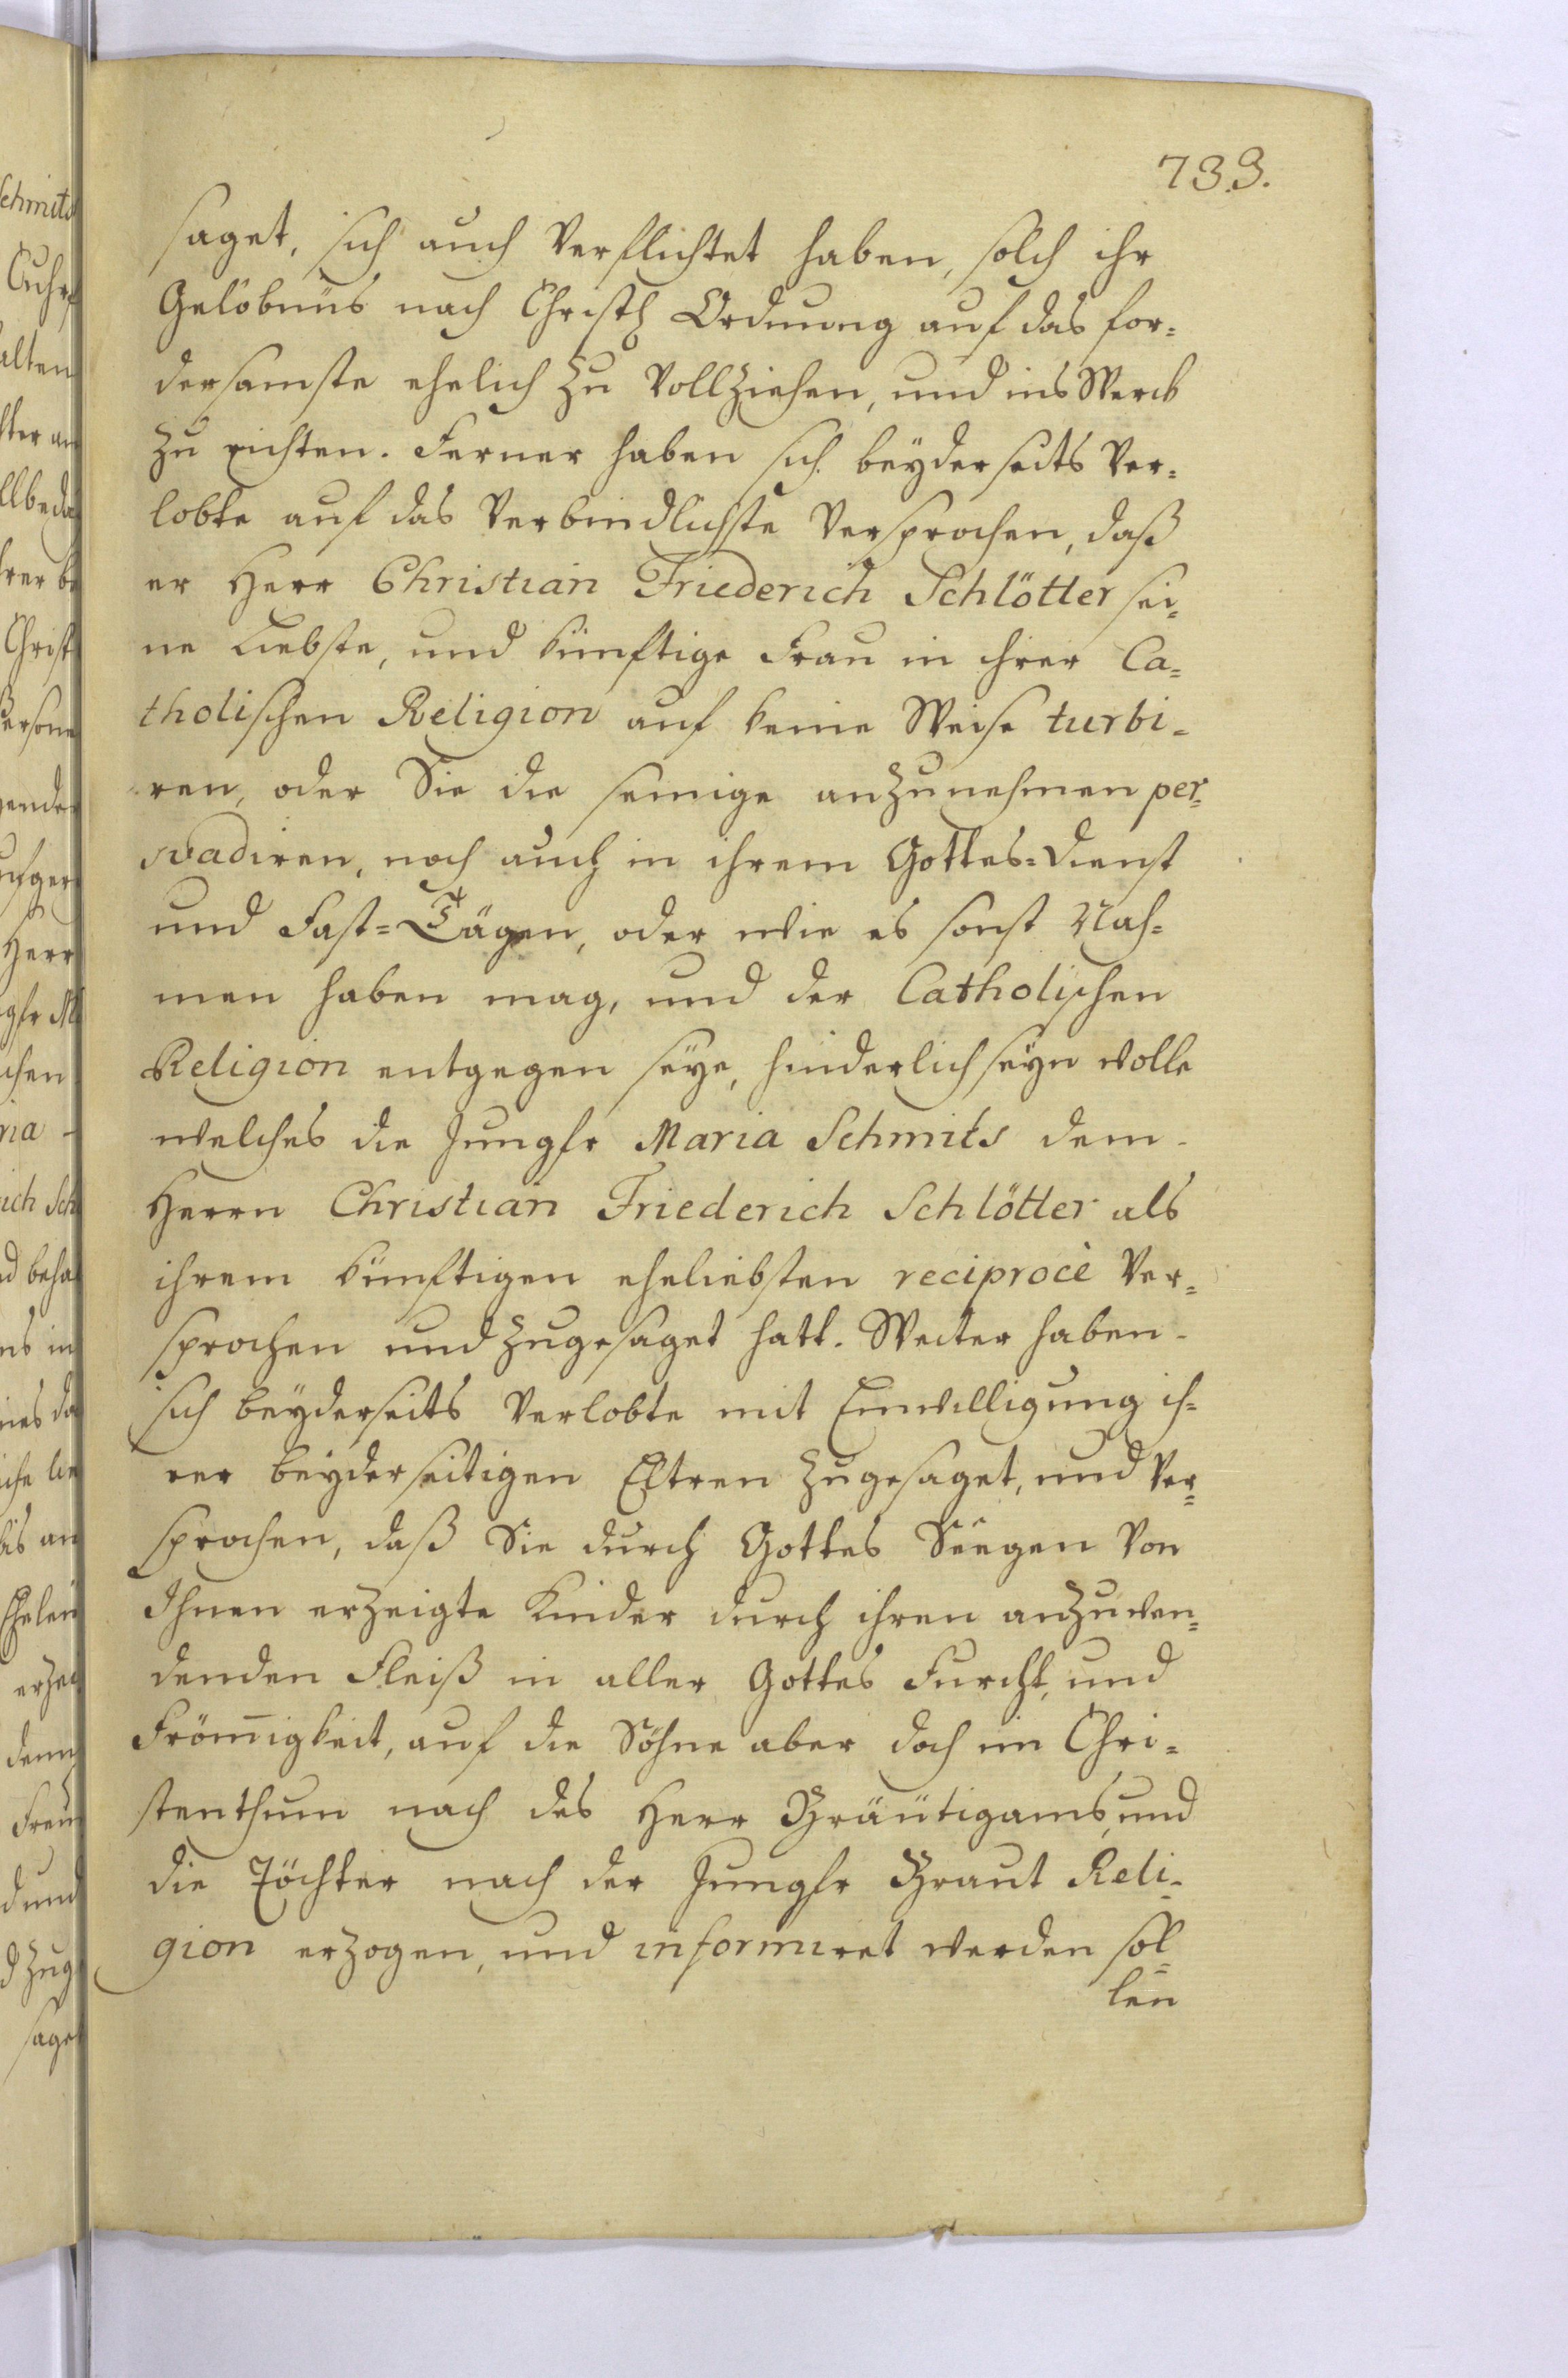 733.
saget, sich auch Verpflichtet haben, solch ihr
Gelöbnüs nach Christl Ordnung auf das for-
dersamste ehelich zu Vollziehen, und ins Werck
zu richten. Ferner haben sich beyderseits Ver-
lobte auf das Verbindlichste Versprochen, daß
er Herr Christian Friederich Schlötter sei-
ne Liebste, und künftige Frau in ihrer Ca-
tholischen Religion auf keine Weise turbi-
ren, oder Sie die seinige anzunehmen per-
svadiren, noch auch in ihrem Gottes-Dienst
und Fast-Tägen, oder wie es sonst Nah-
men haben mag, und der Catholischen
Religion entgegen seye, hinderlich seyn wolle
welches die Jungfr Maria Schmits dem
Herrn Christian Friederich Schlötter als
ihrem künftigen eheliebsten reciprocè Ver-
sprochen und zugesaget hatt. Weiter haben
sich beyderseits Verlobte mit Einwilligung ih-
rer beyderseitigen Eltren zugesaget, und Ver-
sprochen, daß Sie durch Gottes Seegen Von
Ihnen erzeigte Kinder durch ihren anzuwen-
denden Fleiß in aller Gottes Furcht, und
Frömigkeit, auf die Söhne aber doch im Chri-
stenthum nach des Herr Bräutigams, und
die Töchter nach der Jungfr Braut Reli-
gion erzogen, und informiret werden sol-
len